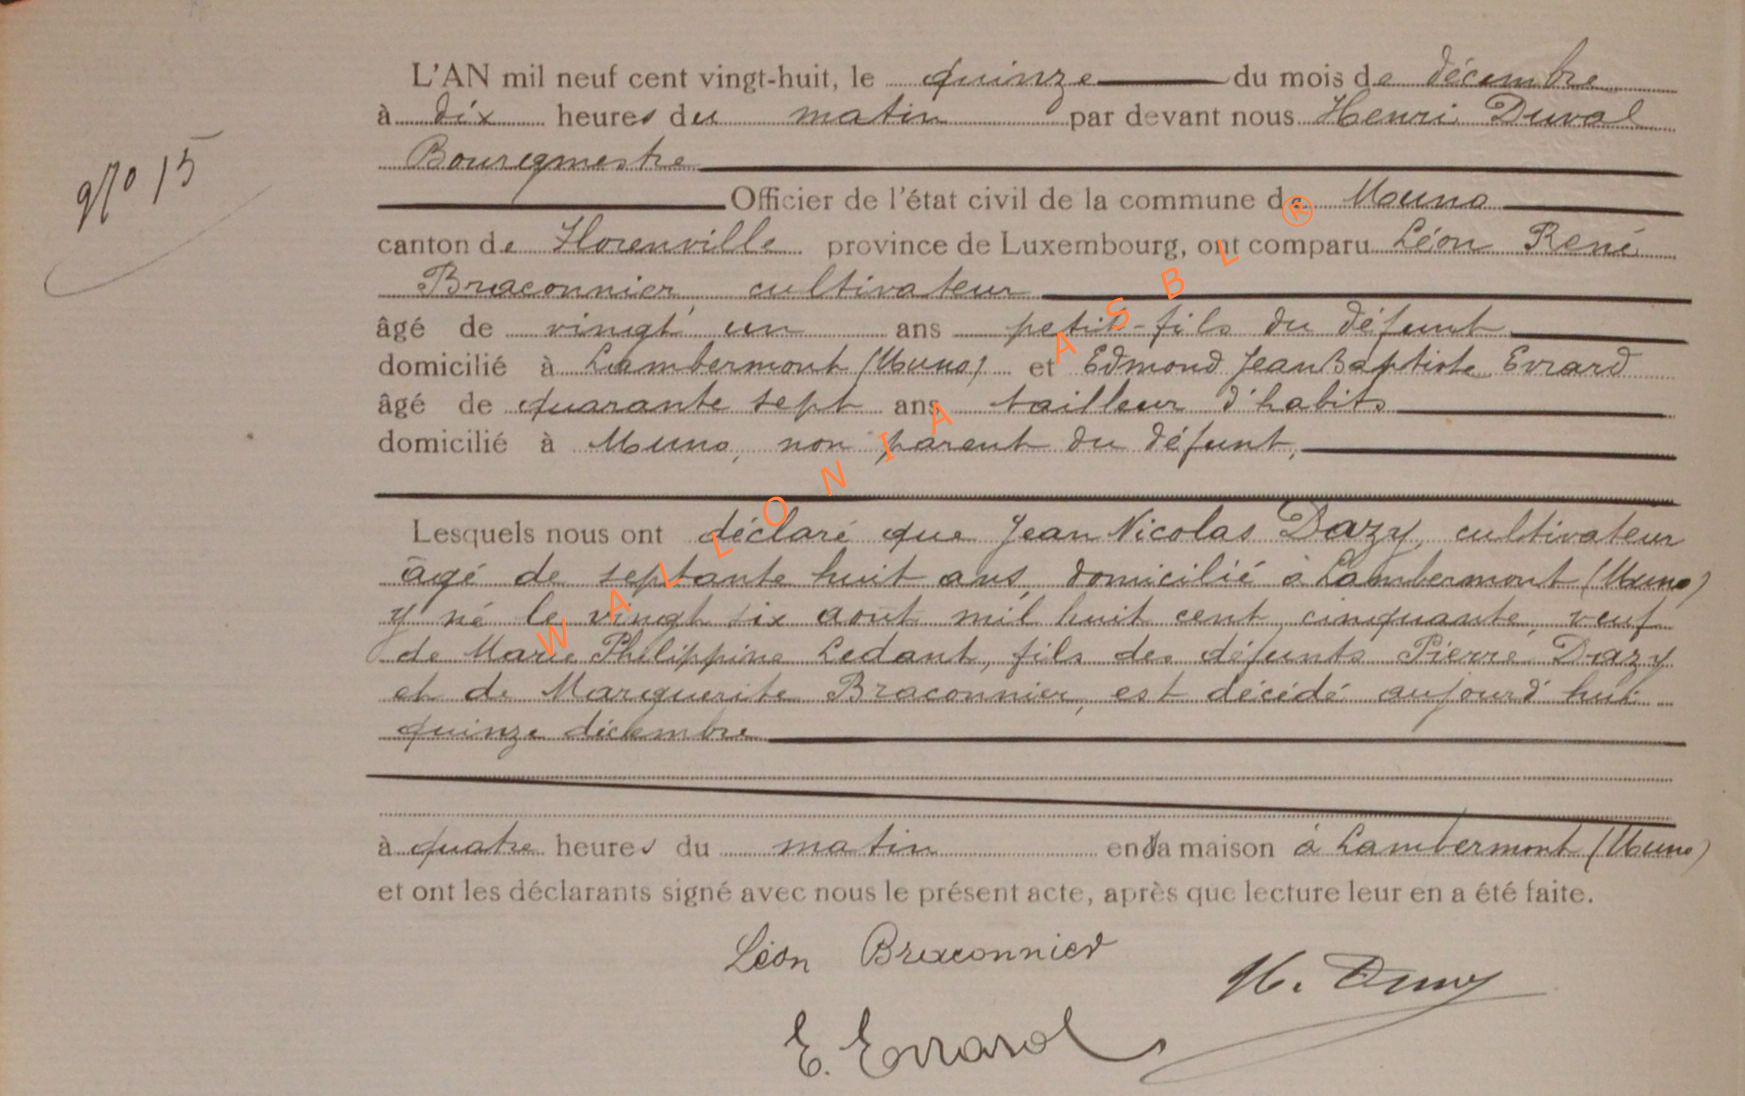 L'AN mil neuf cent vingt-huit, le quinze du mois de décembre
à dix heures du matin par devant nous Henri Duval
Bourgmestre
N° 15
Officier de l'état civil de la commune de Muno
canton de Florenville province de Luxembourg, ont comparu Léon René
Braconnier cultivateur
âgé de vingt un ans petit-fils du défunt
domicilié à Lambermont (Muno) et Edmond Jean Baptiste Evrard
âgé de quarante sept ans tailleur d'habits
domicilié à Muno, non parent du défunt,
Lesquels nous ont déclaré que Jean Nicolas Dazy, cultivateur
âgé de septante huit ans, domicilié à Lambermont (Muno)
y né le vingt six aout mil huit cent cinquante, veuf
de Marie Philippine Ledant, fils des défunts Pierre Dazy
et de Marguerite Braconnier, est décédé aujourd'hui
quinze décembre
à quatre heures du matin en sa maison à Lambermont (Muno)
et ont les déclarants signé avec nous le présent acte, après que lecture leur en a été faite.
Léon Braconnier
H. Duval
E. Evrard
WALLONIA ASBL ®